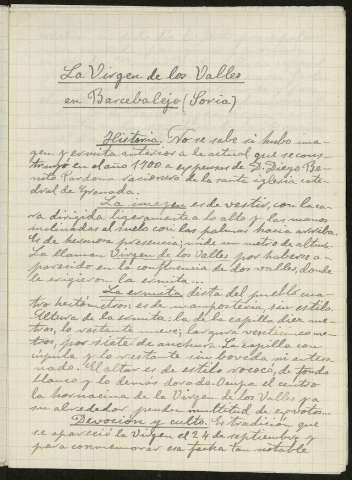 La Virgen de los Valles
en Barcebalejo (Soria)
Historia. No se sabe si hubo ima-
gen y ermita anterior a la actual que se cons-
truyó en el año 1700 a expensas de D. Diego Be-
nito Pardo racionero de la santa iglesia cate-
dral de Granada.
La imagen es de vestir, con la ca-
ra dirigida ligeramente a lo alto y las manos
inclinadas al suelo con las palmas hacia arriba.
Es de hermosa presencia; mide un metro de altura.
La llaman Virgen de los Valles por haberse a-
parecido en la confluencia de dos valles, donde
le erigieron la ermita...
La ermita dista del pueblo cua-
tro hectómetros; es de mampostería, sin estilo.
Altura de la ermita: la de la capilla diez me-
tros, lo restante nueve; largura veinticinco me-
tros, por siete de anchura. La capilla con
cúpula y lo restante sin bóveda ni artesa-
nado. El altar es de estilo rococó, de fondo
blanco y lo demás dorado. Ocupa el centro
la hornacina de la Virgen de los Valles y a
su alrededor penden multitud de exvotos...
Devoción y culto. Es tradición que
se apareció la Virgen el 24 de septiembre y
para conmemorar esa fecha tan notable